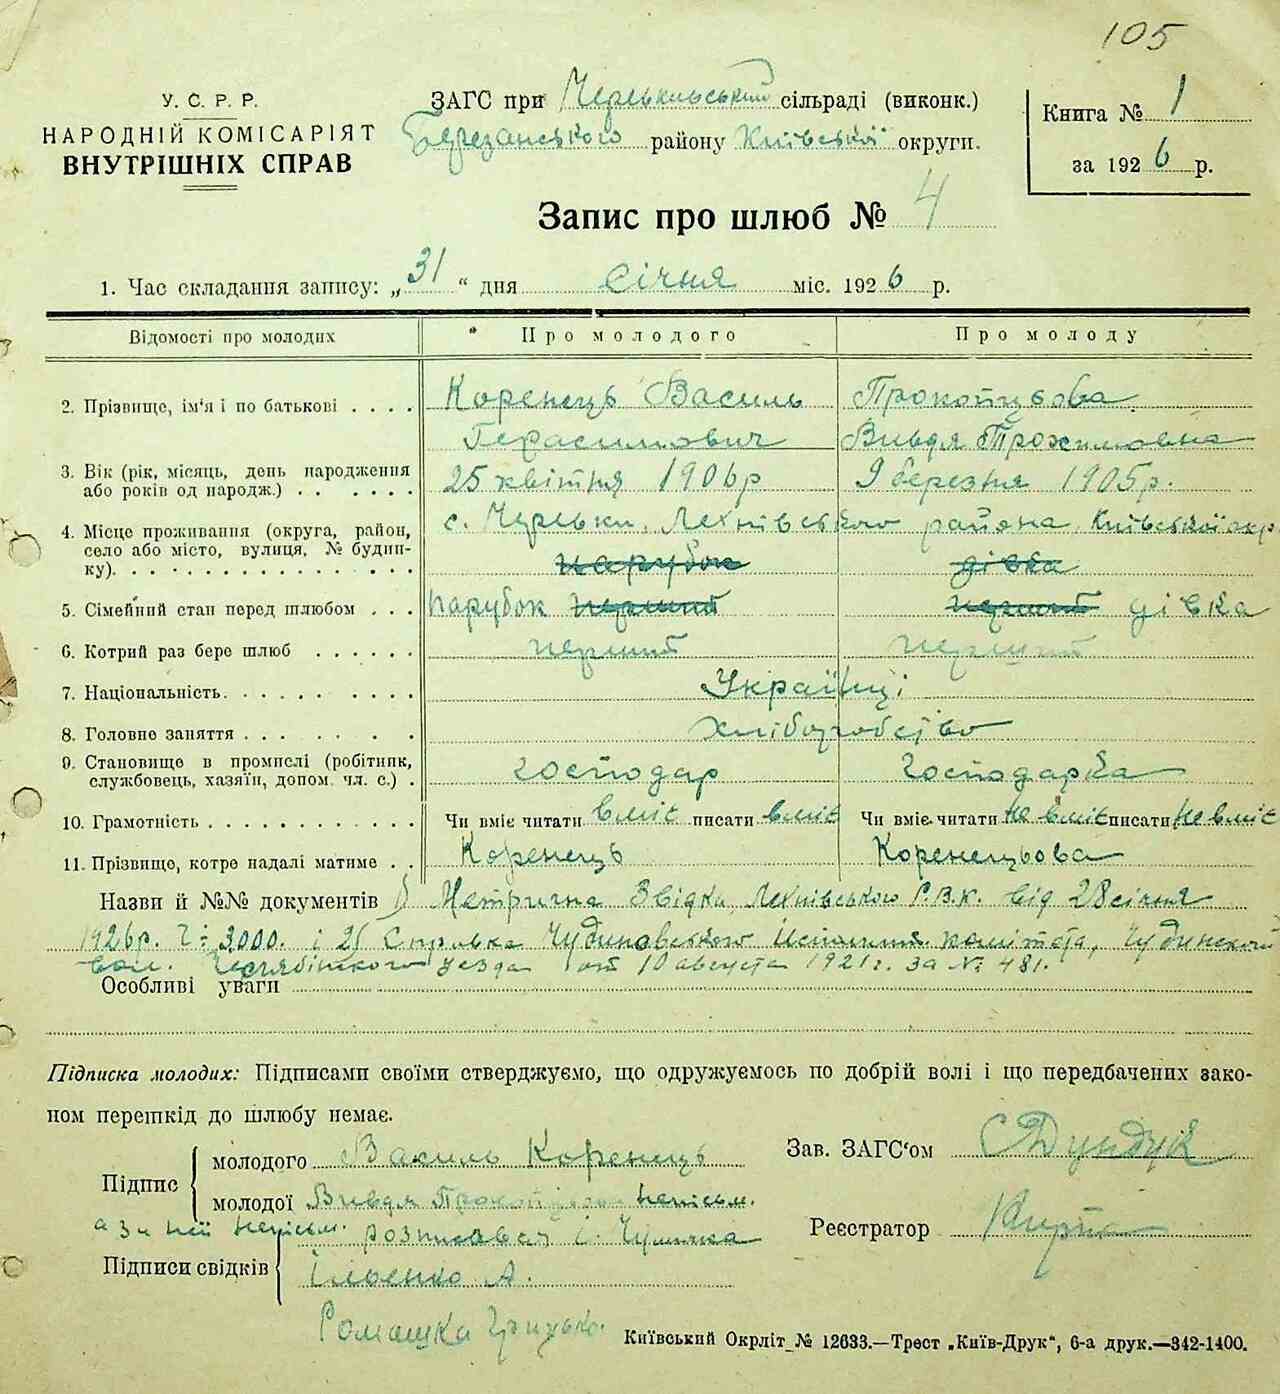 105
У. С. Р. Р.
НАРОДНІЙ КОМІСАРІЯТ
ВНУТРІШНІХ СПРАВ
ЗАГС при сільраді (виконк.)
Березанського району Київської округи.
Книга № 1
за 1926 р.
Запис про шлюб № 4
1. Час складання запису: „31“ дня січня міс. 1926 р.
Відомості про молодих Про молодого Про молоду
2. Прізвище, ім'я і по батькові . . . . Коренець Василь Прокопцьова
Герасимович Вивдя Трохимовна
3. Вік (рік, місяць, день народження 25 квітня 1906р 9 березня 1905р.
або років од народж.) . . . . . .
4. Місце проживання (округа, район, с. Черевки, Лехнівського района, Київської окр.
село або місто, вулиця, № будин-
ку). . . . . . . . . . . . . . парубок дівка
5. Сімейний стан перед шлюбом . . . парубок перший перший дівка
6. Котрий раз бере шлюб . . . . . . перший перший
7. Національність. . . . . . . . . . Українці
8. Головне заняття . . . . . . . . хліборобство
9. Становище в промислі (робітник, господар господарка
службовець, хазяїн, допом. чл. с.) .
10. Грамотність . . . . . . . . . . . Чи вміє читати вміє писати вміє Чи вміє читати не вміє писати не вміє
11. Прізвище, котре надалі матиме . . Коренець Коренецьова
Назви й №№ документів 1) Метрична Звідки, Лехнівського Р.В.К. від 28 січня
1926р. Ч: 3000. і 2) Справка Чудиновського Исполнит. комітета, Чудинский
вол. Челябінского уезда от 10 августа 1921г. за № 481.
Особливі уваги
Підписка молодих: Підписами своїми стверджуємо, що одружуємось по добрій волі і що передбачених зако-
ном перешкід до шлюбу немає.
Підпис
молодого Василь Коренець
молодої Вивдя неписьм.
а за неї неписьм. розписавсь і.
Підписи свідків
Ільєнко А.
Ромашка Грицько.
Зав. ЗАГС'ом
Реєстратор
Київський Окрліт № 12633.—Трест „Київ-Друк“, 6-а друк.—342-1400.